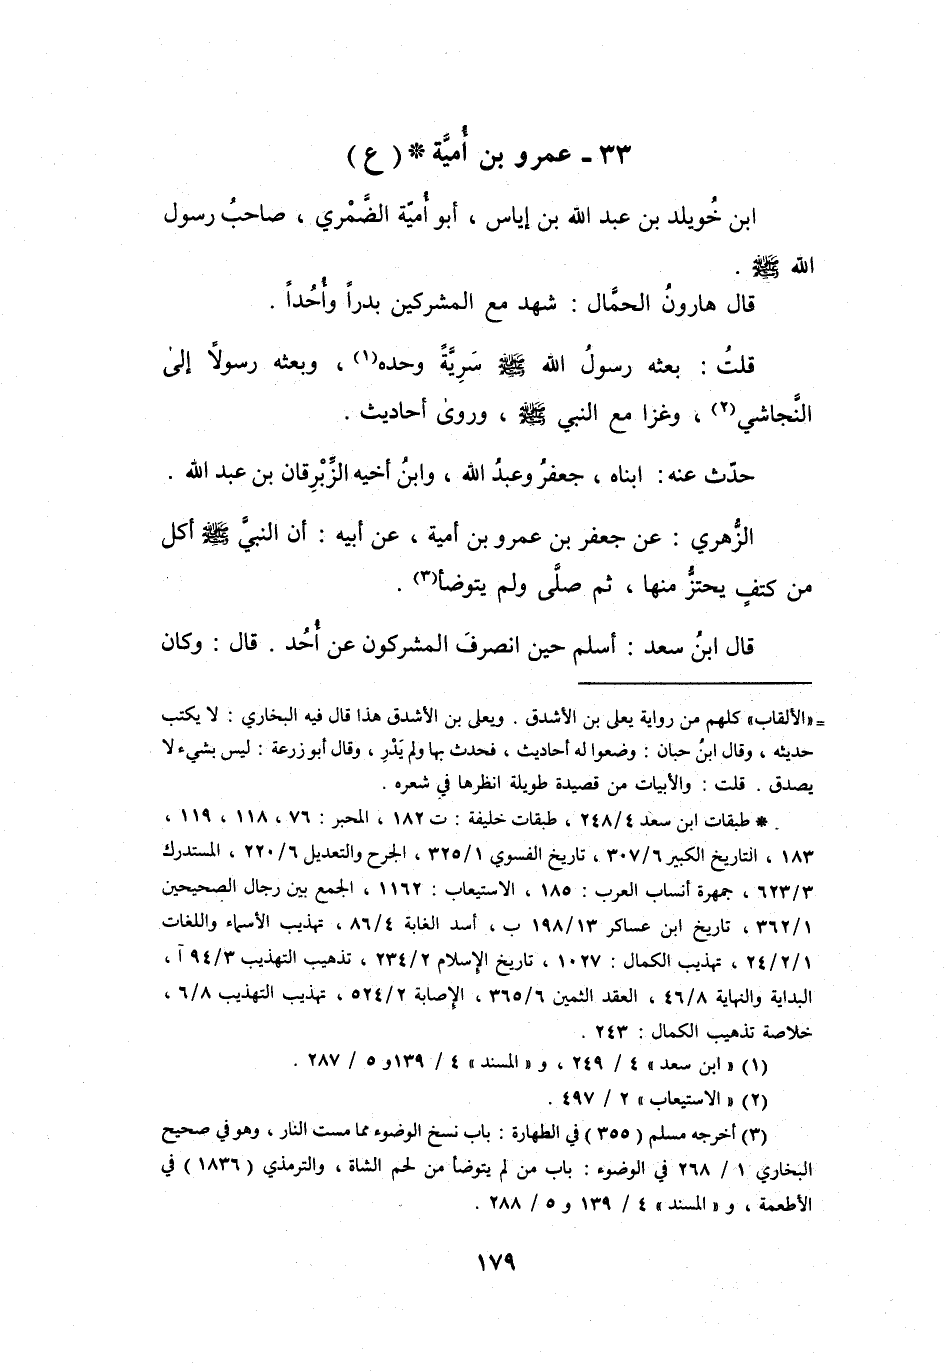 ٣٣ ـ عمرو بن أُميَّة * ( ع )
ابن خُويلد بن عبد الله بن إياس ، أبو أُميّة الضَّمْري ، صاحبُ رسول
الله ﷺ .
قال هارونُ الحمَّال : شهد مع المشركين بدراً وأُحُداً .
قلتُ : بعثه رسولُ الله ﷺ سَرِيَّةً وحده(١) ، وبعثه رسولًا إلىٰ
النَّجاشي(٢) ، وغزا مع النبي ﷺ ، وروىٰ أحاديث .
حدّث عنه: ابناه ، جعفرُ وعبدُ الله ، وابنُ أخيه الزِّبْرِقان بن عبد الله .
الزُّهري : عن جعفر بن عمرو بن أمية ، عن أبيه : أن النبيَّ ﷺ أكل
من كتفٍ يحتزُّ منها ، ثم صلَّى ولم يتوضأ(٣) .
قال ابنُ سعد : أسلم حين انصرفَ المشركون عن أُحُد . قال : وكان
= «الألقاب» كلهم من رواية يعلى بن الأشدق . ويعلى بن الأشدق هذا قال فيه البخاري : لا يكتب
حديثه ، وقال ابنُ حبان : وضعوا له أحاديث ، فحدث بها ولم يَدْرِ ، وقال أبو زرعة : ليس بشيء لا
يصدق . قلت : والأبيات من قصيدة طويلة انظرها في شعره .
* طبقات ابن سعد ٢٤٨/٤ ، طبقات خليفة : ت ١٨٢ ، المحبر : ٧٦ ، ١١٨ ، ١١٩ ،
١٨٣ ، التاريخ الكبير ٣٠٧/٦ ، تاريخ الفسوي ٣٢٥/١ ، الجرح والتعديل ٢٢٠/٦ ، المستدرك
٦٢٣/٣ ، جمهرة أنساب العرب : ١٨٥ ، الاستيعاب : ١١٦٢ ، الجمع بين رجال الصحيحين
٣٦٢/١ ، تاريخ ابن عساكر ١٩٨/١٣ ب ، أسد الغابة ٨٦/٤ ، تهذيب الأسماء واللغات
٢٤/٢/١ ، تهذيب الكمال : ١٠٢٧ ، تاريخ الإسلام ٢٣٤/٢ ، تذهيب التهذيب ٩٤/٣ آ ،
البداية والنهاية ٤٦/٨ ، العقد الثمين ٣٦٥/٦ ، الإصابة ٥٢٤/٢ ، تهذيب التهذيب ٦/٨ ،
خلاصة تذهيب الكمال : ٢٤٣ .
(١) « ابن سعد » ٤ / ٢٤٩ ، و « المسند » ٤ / ١٣٩و ٥ / ٢٨٧ .
(٢) « الاستيعاب » ٢ / ٤٩٧ .
(٣) أخرجه مسلم ( ٣٥٥ ) في الطهارة : باب نسخ الوضوء مما مست النار ، وهو في صحيح
البخاري ١ / ٢٦٨ في الوضوء : باب من لم يتوضأ من لحم الشاة ، والترمذي ( ١٨٣٦ ) في
الأطعمة ، و « المسند » ٤ / ١٣٩ و ٥ / ٢٨٨ .
١٧٩